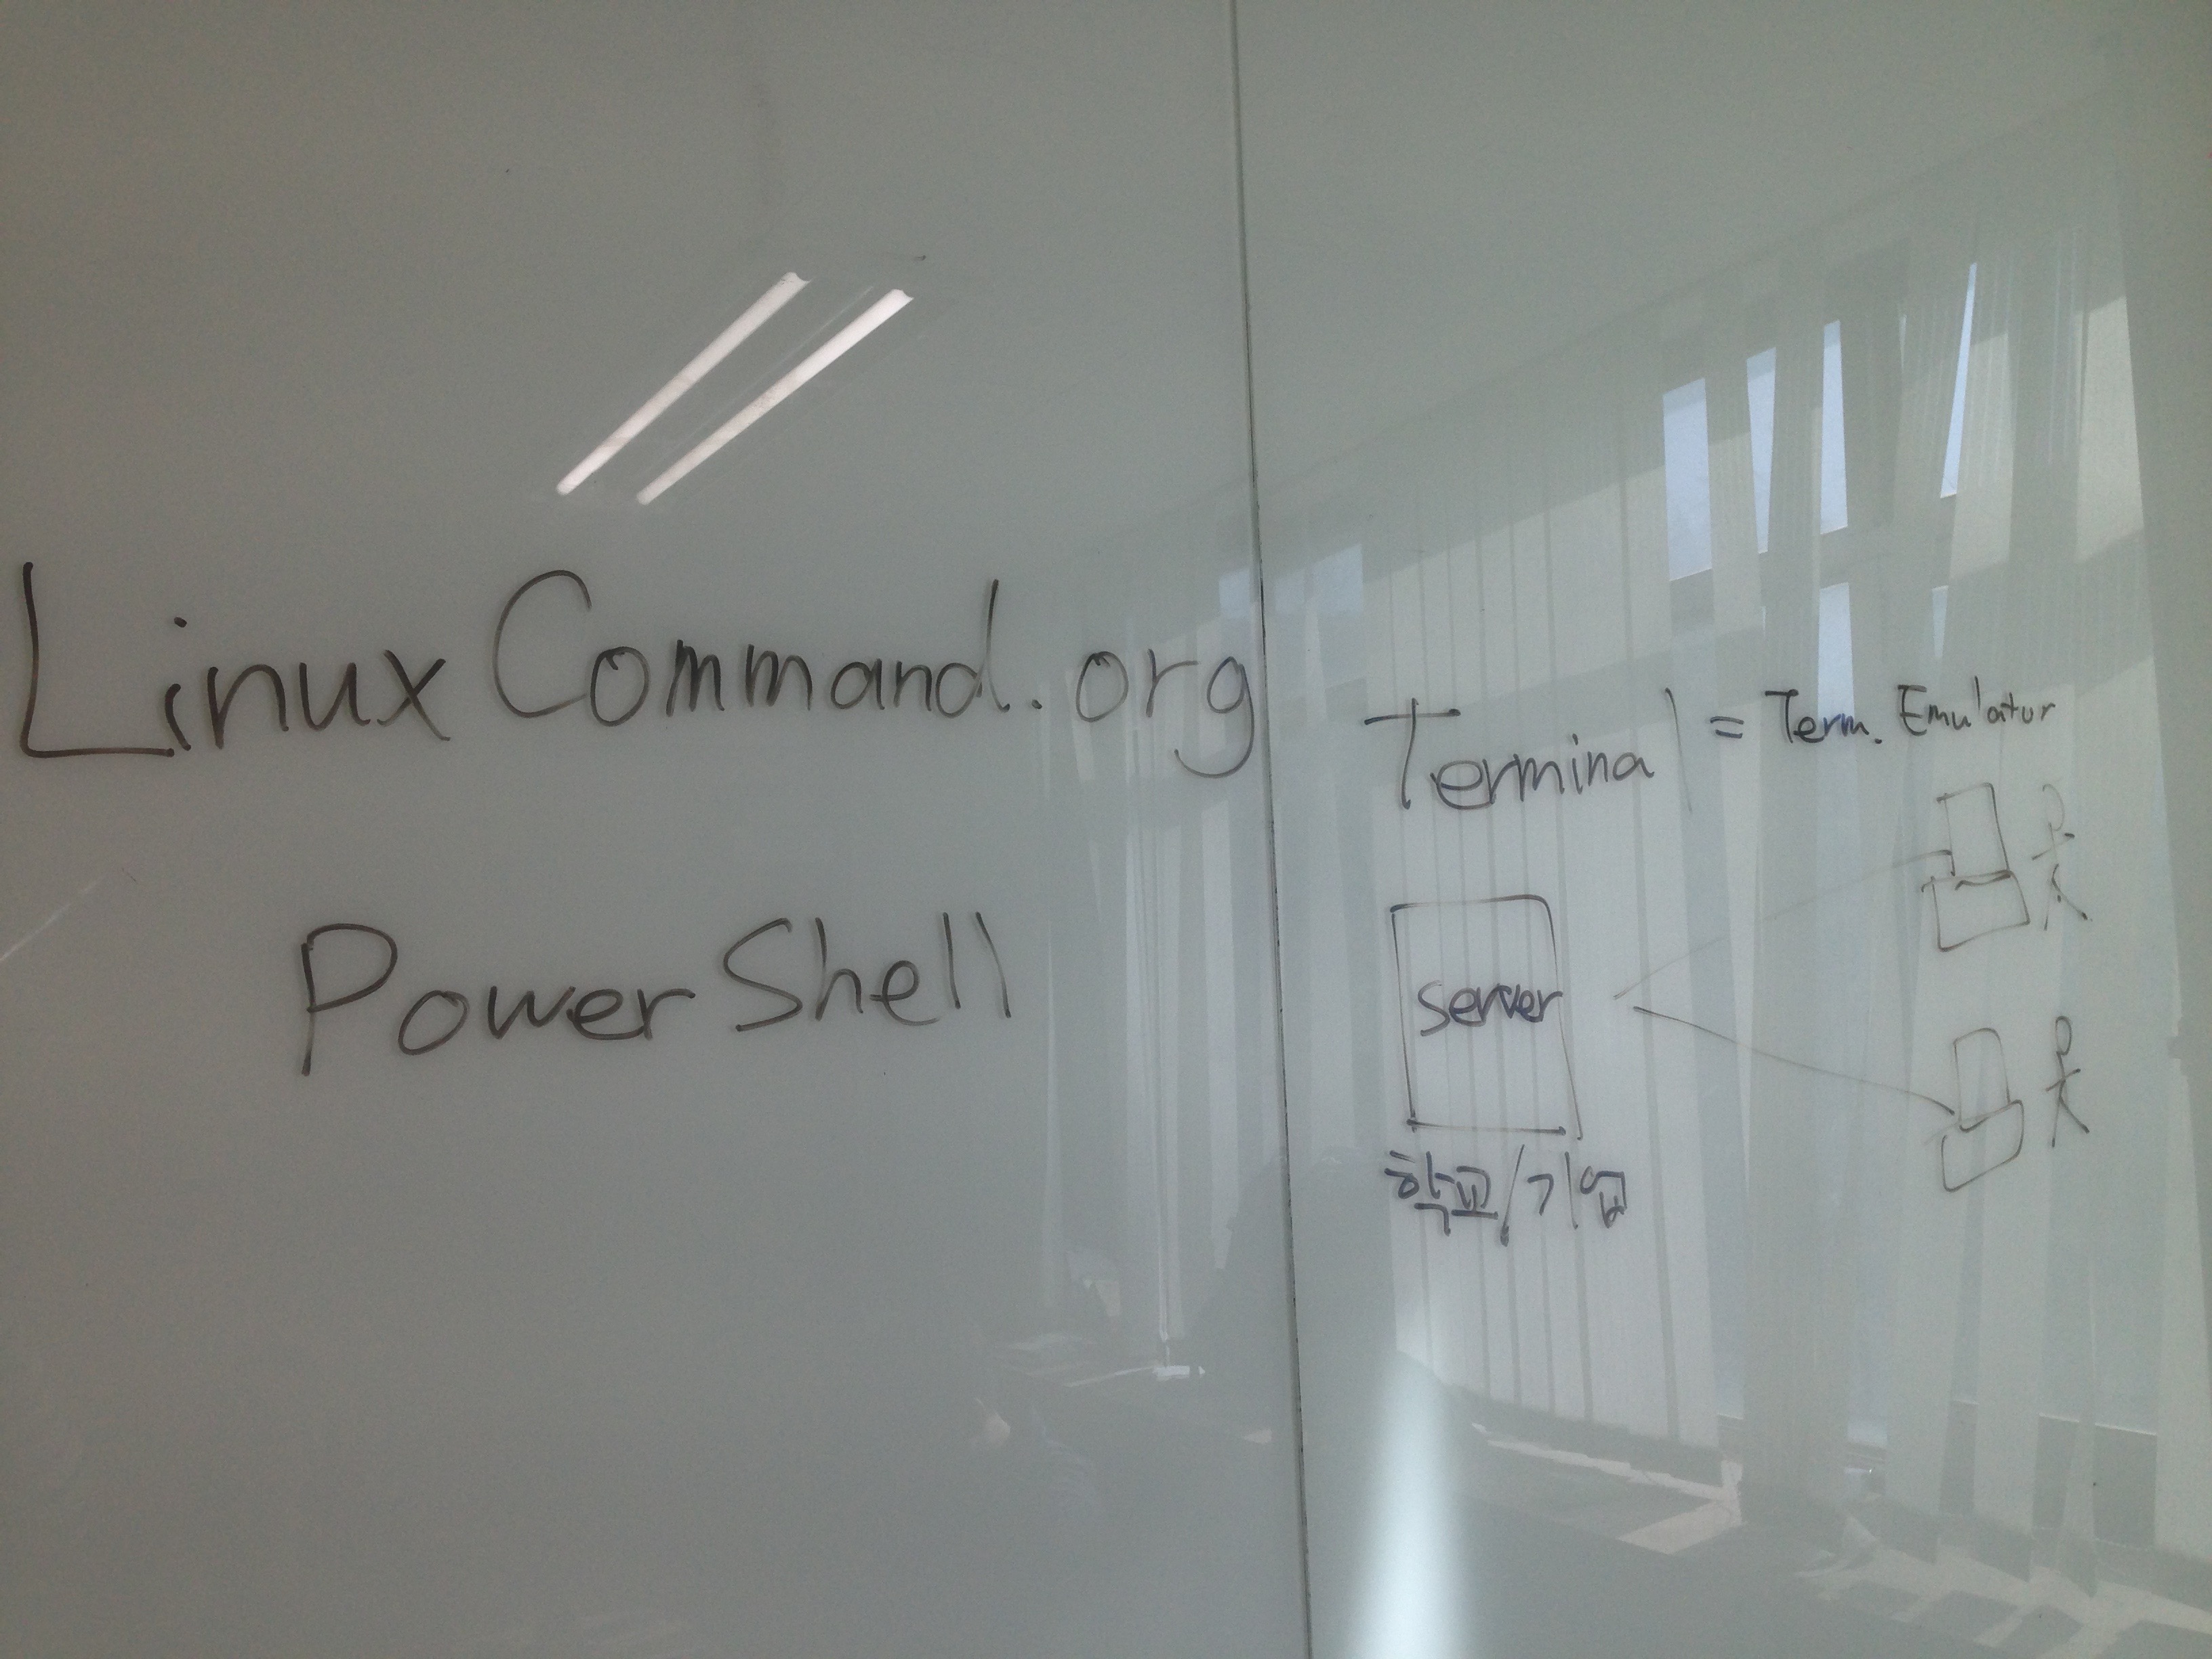 LinuxCommand.org
PowerShell
Terminal = Term. Emulator
server
학교/기업